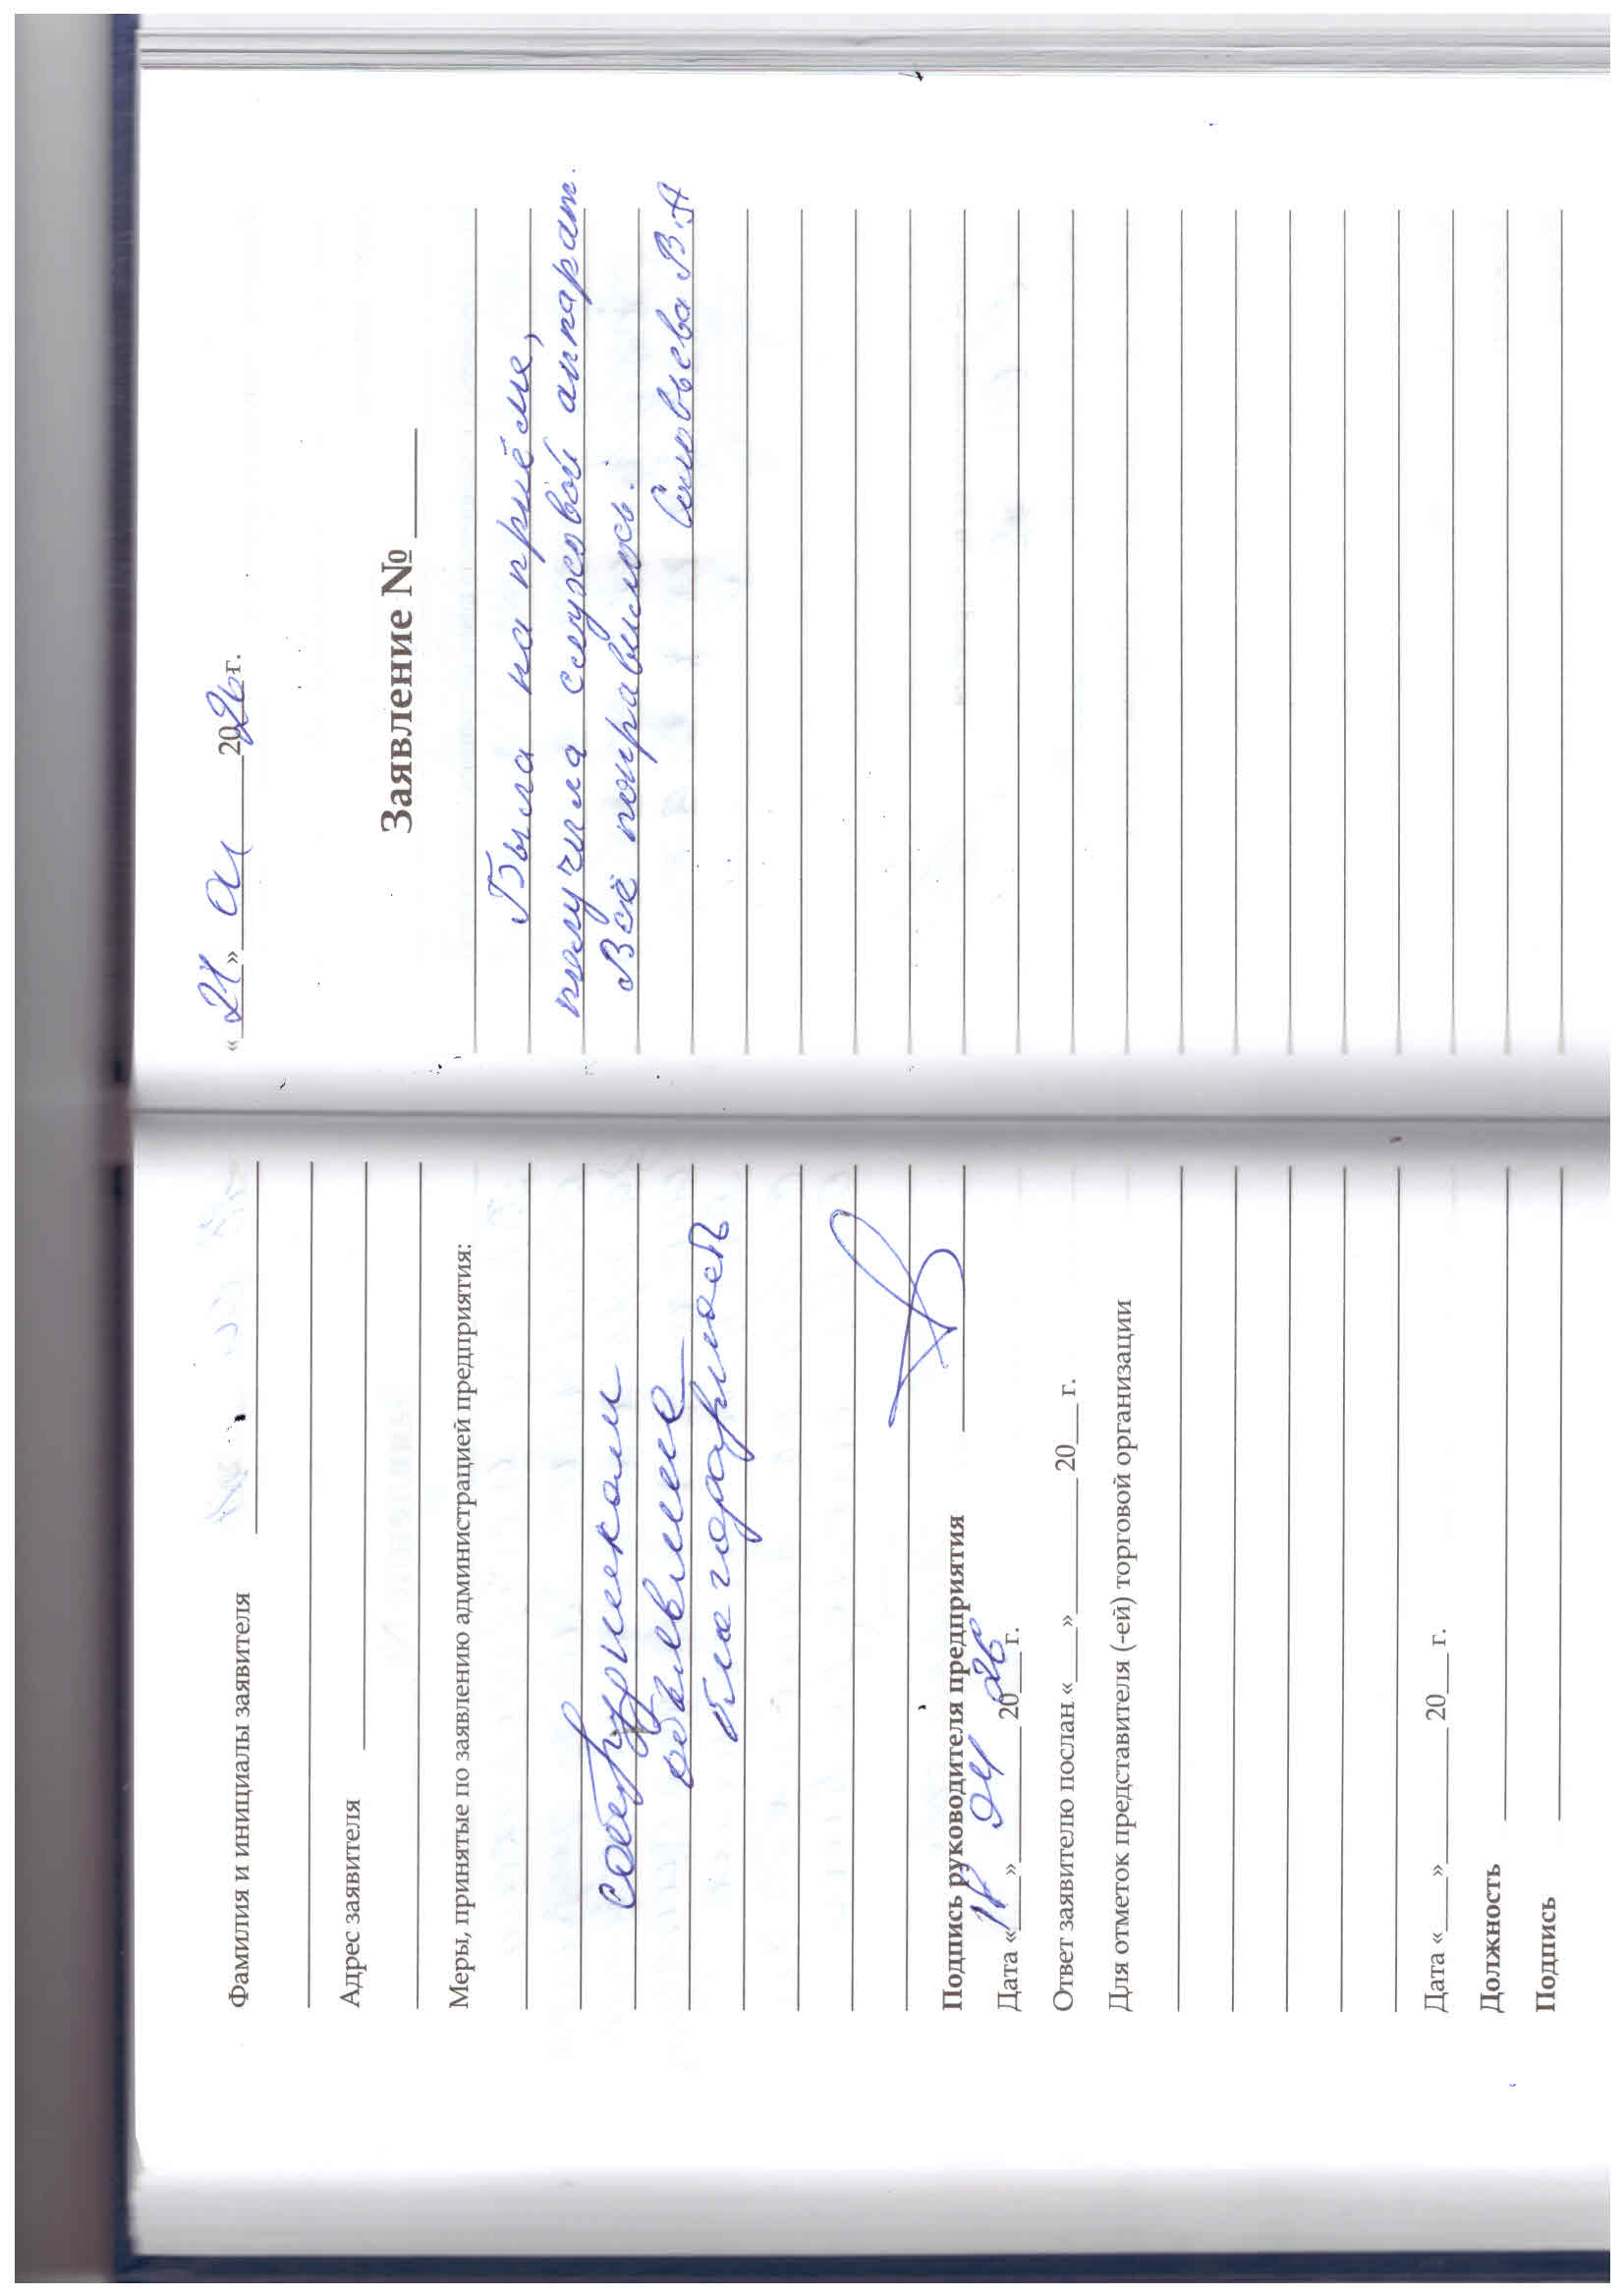 Фамилия и инициалы заявителя
Адрес заявителя
Меры, принятые по заявлению администрацией предприятия:
сотрудникам
объявлена
благодарность
Подпись руководителя предприятия
Дата «18» 04 2026 г.
Ответ заявителю послан «___» 20___ г.
Для отметок представителя (-ей) торговой организации
Дата «___» 20___ г.
Должность
Подпись
«21» 2026 г.
Заявление №
Была на приёме,
получила слуховой аппарат.
Всё понравилось.
Соловьева В.А